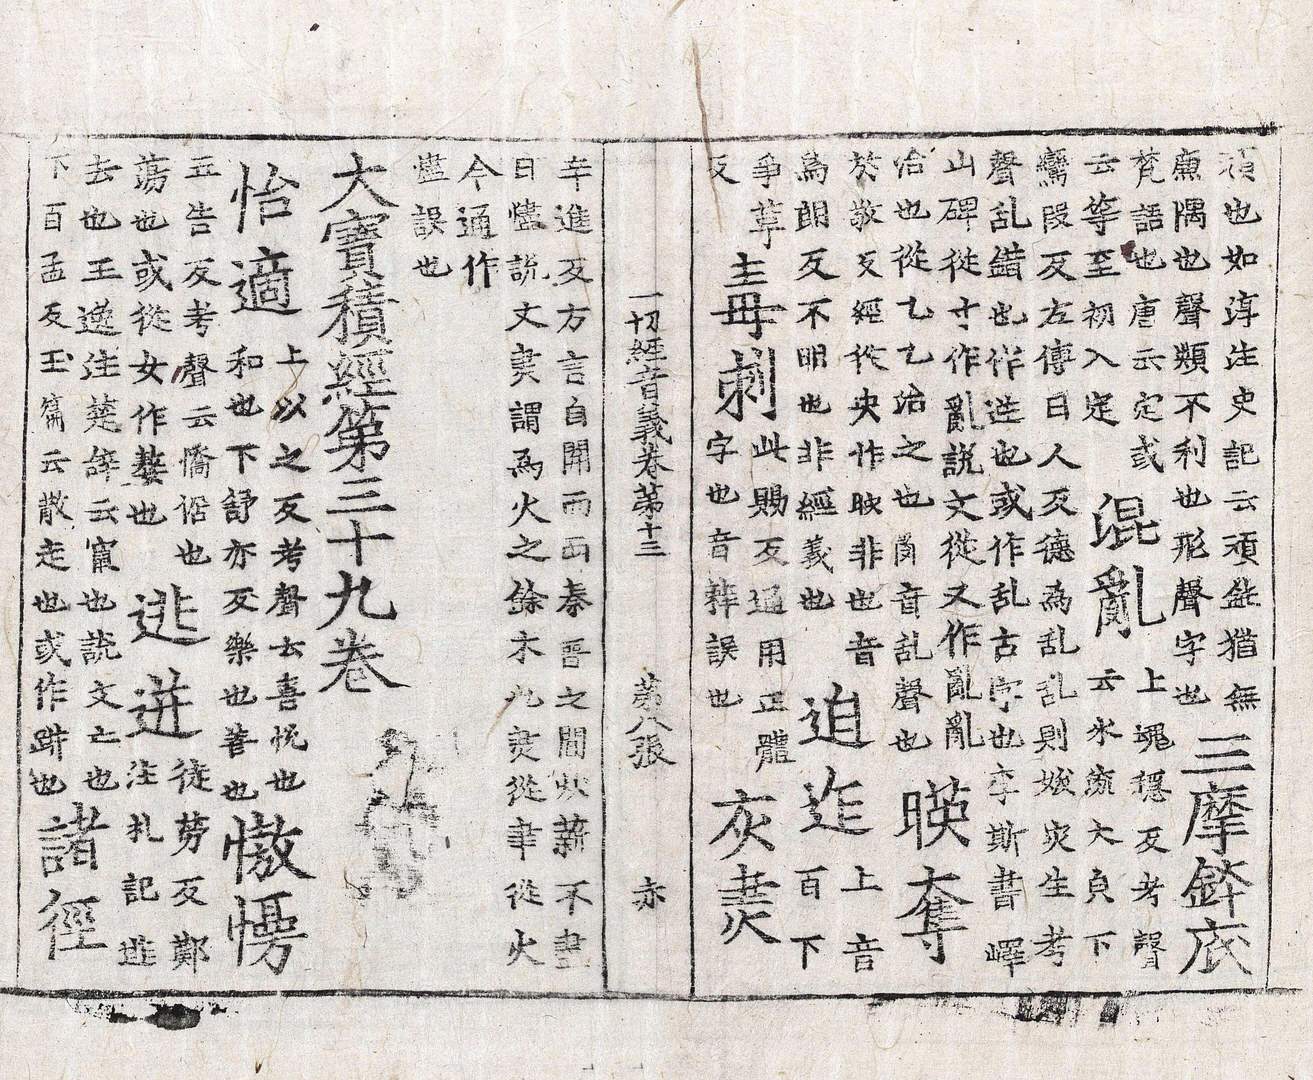 頑也如淳注史記云頑鈍猶無
廉隅也聲類不利也形聲字也
三摩鉢底
梵語也唐云定或
云等至初入定
混亂
上魂穩反考聲
云水流大皃下
鸞段反左傳曰人反德為乱乱則妖灾生考
聲乱錯也作迣也或作乱古字也李斯書嶧
山碑從寸作亂説文從又作亂亂
佁也從乙乙治之也𤔔音乱聲也
暎奪
於敬反經從央作映非也音
烏朗反不明也非經義也
迫迮
上音
百下
爭革
反
毒刺
此賜反通用正體
字也音莿誤也
灰㶳
一切經音義卷第十三 第八張 赤
辛進反方言自關而西秦晉之間炊薪不盡
曰燼説文㶳謂為火之餘木九㶳從聿從火
今通作
燼誤也
大寶積經第三十九卷
怡適
上以之反考聲云喜悦也
和也下舒亦反樂也善也
慠慢
五告反考聲云憍倨也
蕩也或從女作嫯也
逃迸
徒勞反鄭
注礼記逃
去也王逸注楚辞云竄也説文亡也
下百孟反玉篇云散走也或作跰也
諸徑